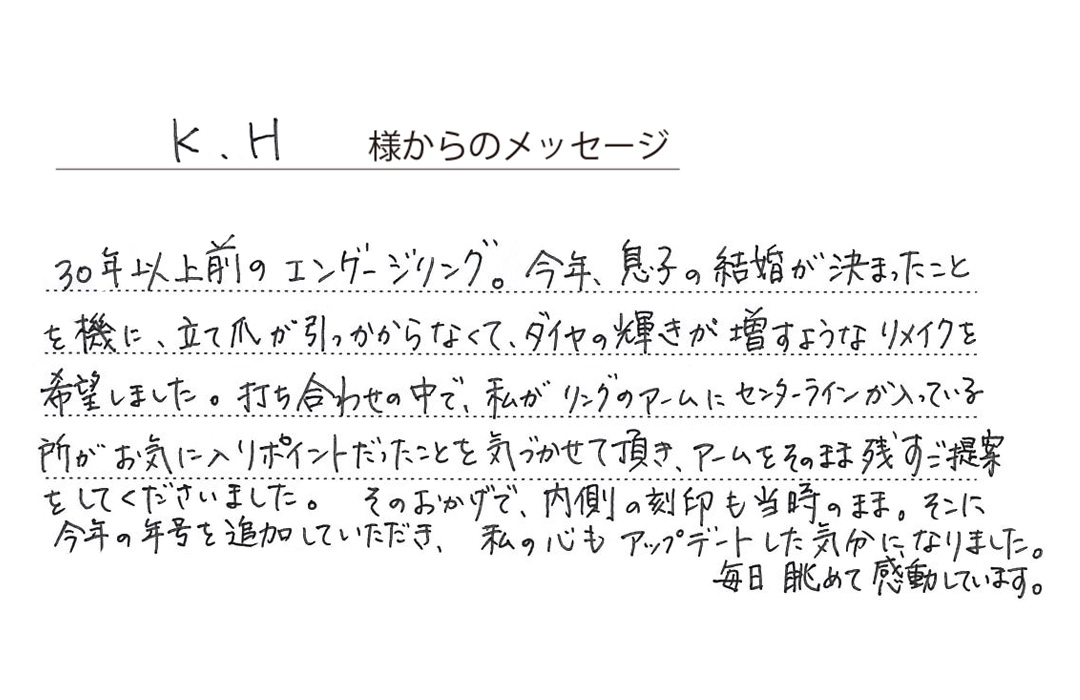 K.H 様からのメッセージ
30年以上前のエンゲージリング。今年、息子の結婚が決まったこと
を機に、立て爪が引っかからなくて、ダイヤの輝きが増すようなリメイクを
希望しました。打ち合わせの中で、私がリングのアームにセンターラインが入っている
所がお気に入りポイントだったことを気づかせて頂き、アームをそのまま残すご提案
をしてくださいました。 そのおかげで、内側の刻印も当時のまま。そこに
今年の年号を追加していただき、 私の心もアップデートした気分になりました。
毎日眺めて感動しています。